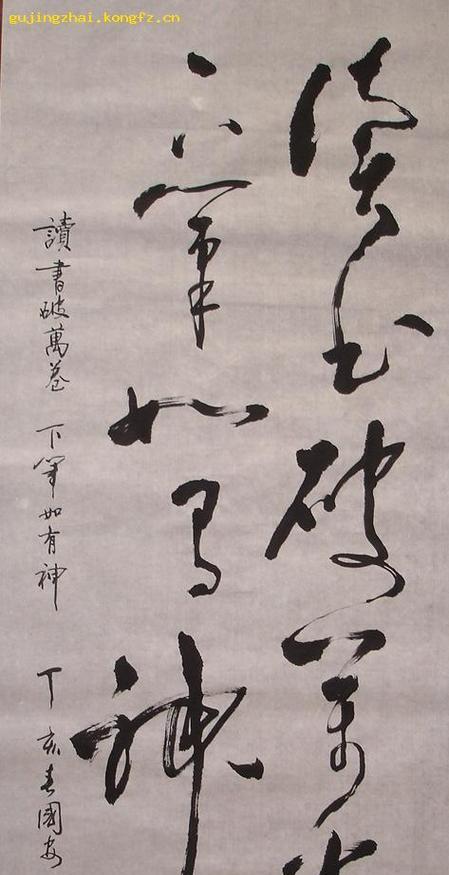 gujingzhai.kongfz.cn
读书破万卷
下笔如有神
讀書破萬卷 下筆如有神 丁亥春國安